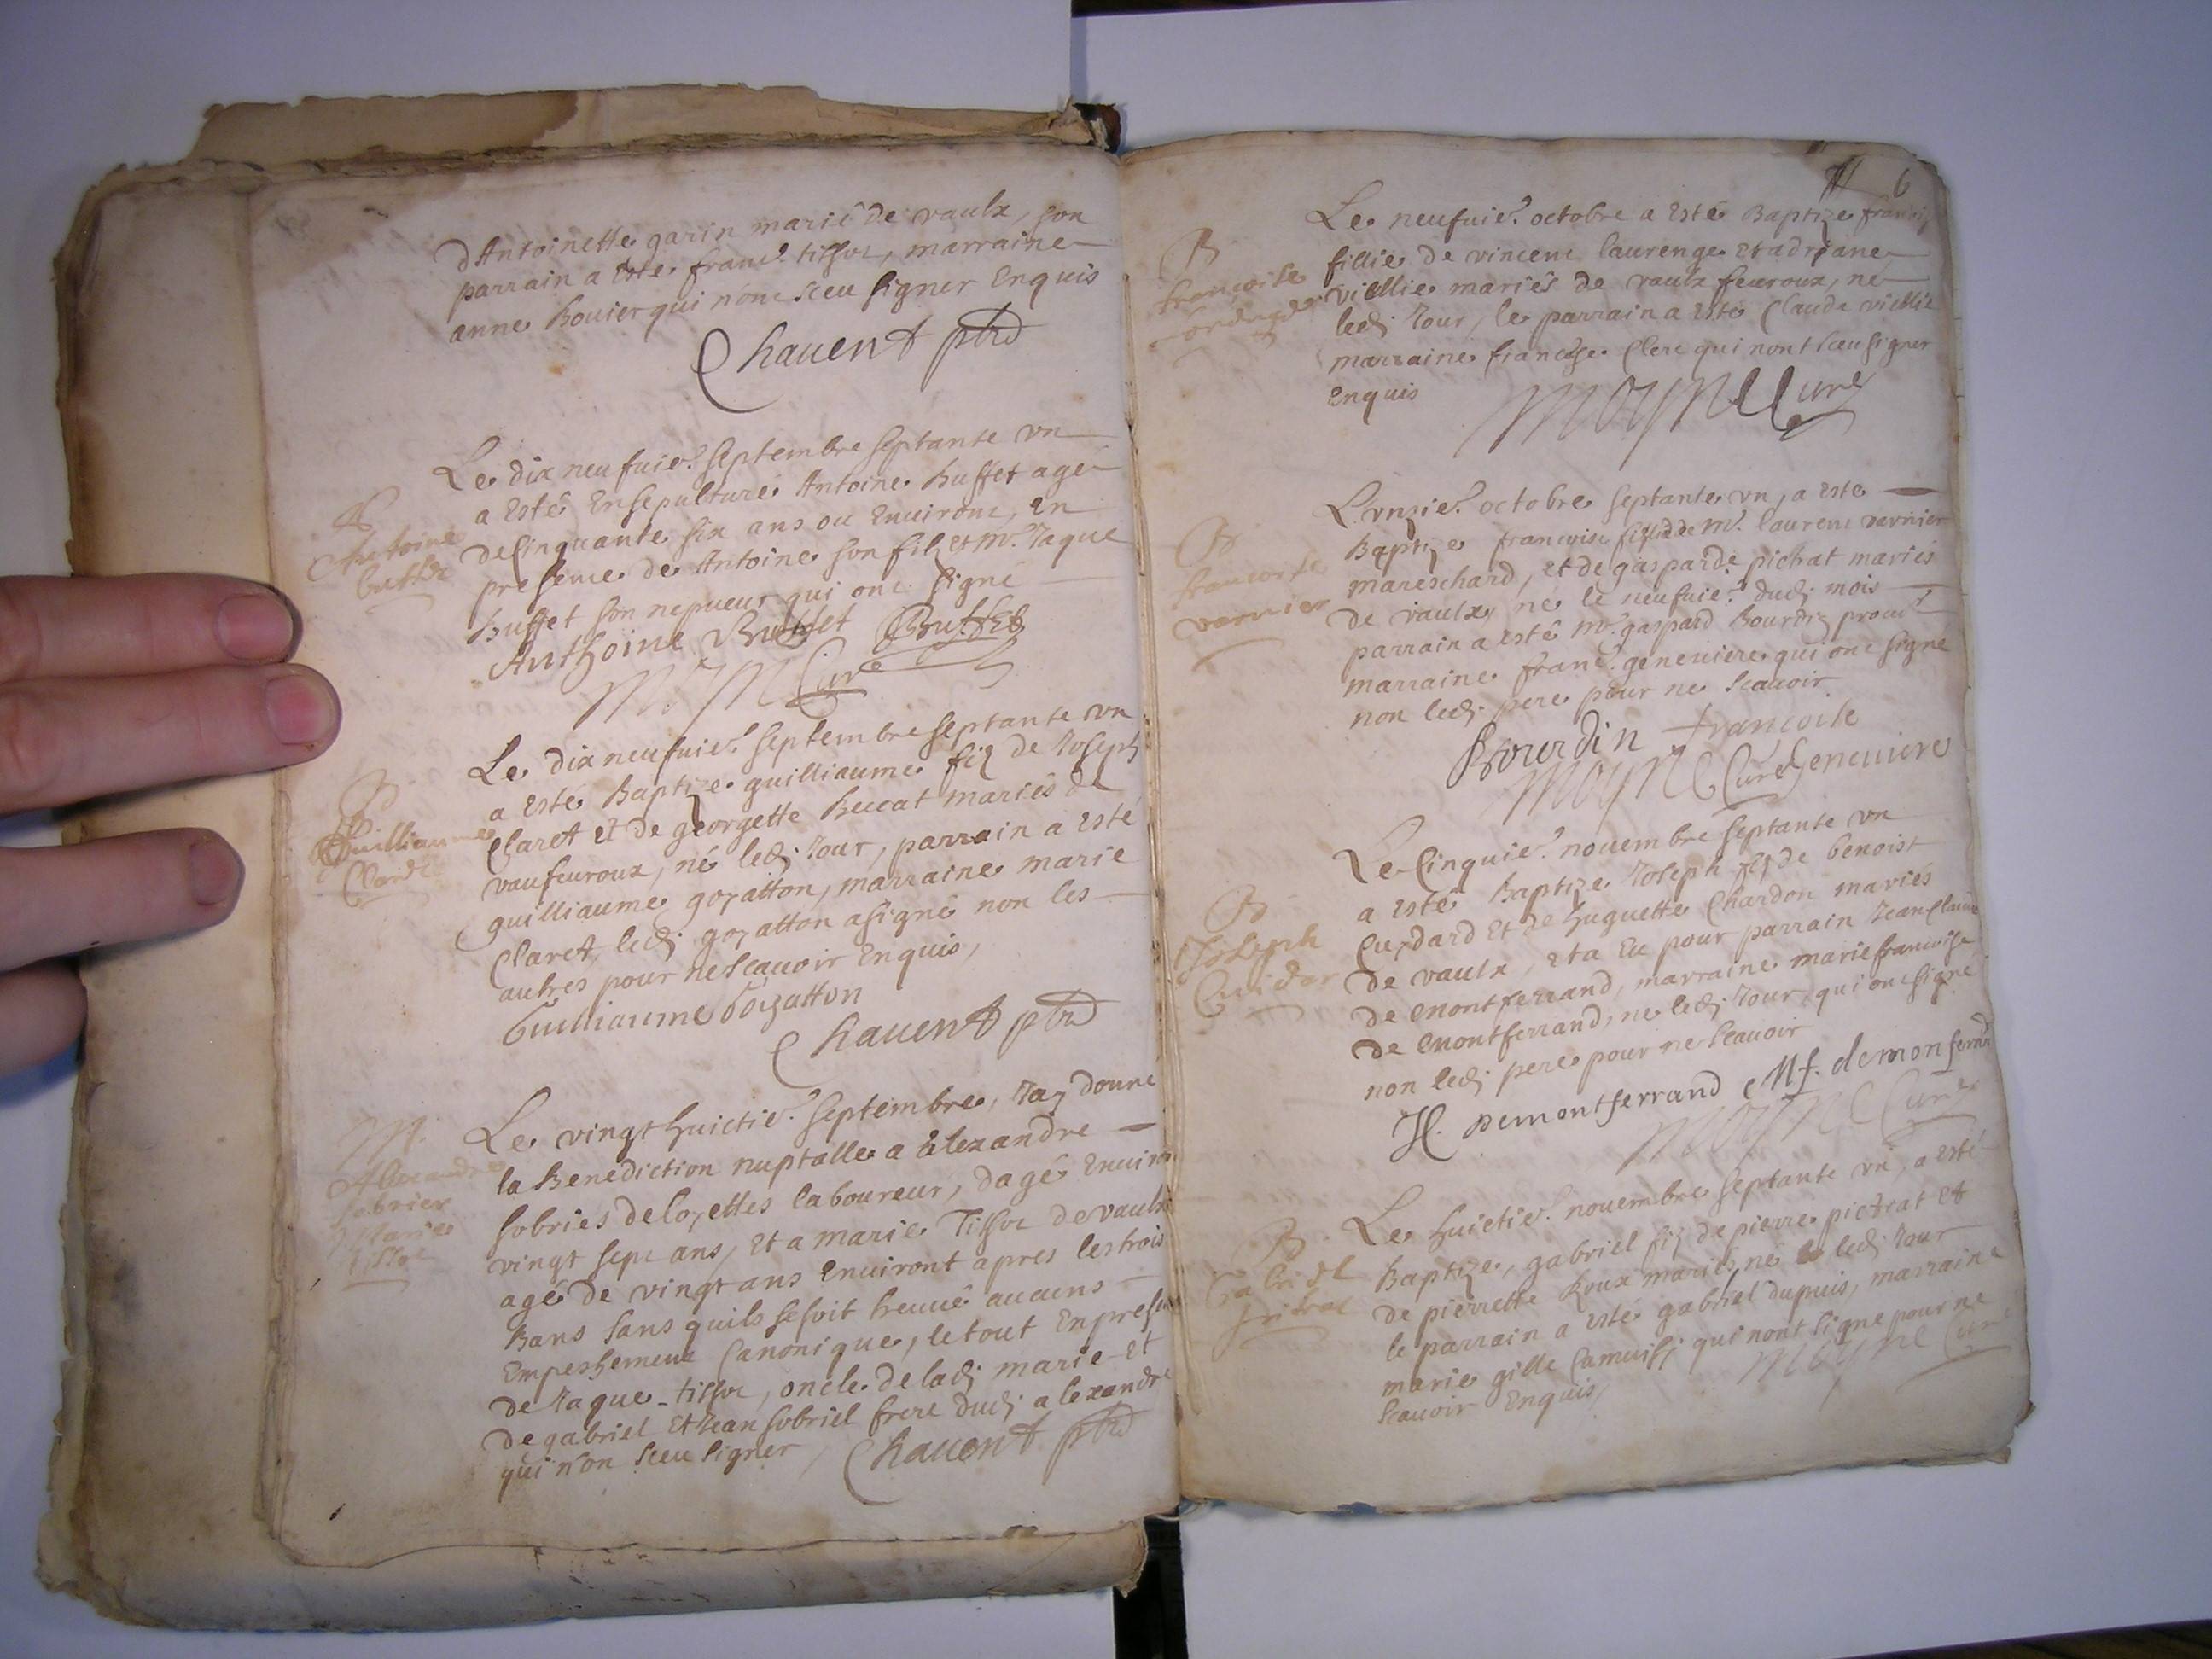 dAntoinette garin mariés de vaulx, son
parrain a esté franc. tissot, marraine
anne bouier qui nont sceu signer Enquis
Chauent ptre
Antoine
buffet
Le dix neufuie. septembre septante vn
a esté Ensepulturé Antoine buffet agé
de Cinquante six ans ou Enuiront, En
presence de Antoine son filz et Mr. Jaque
buffet son nepueur qui ont signé
Anthoine Buffet Buffet
Moyne Curé
B
Guilliaume
Claret
Le dix neufuie. septembre septante vn
a esté Baptizé guilliaume filz de Joseph
Claret et de georgette beccat mariés de
vaufeuroux, né ledi Jour, parrain a esté
guilliaume gozatton, marraine marie
Claret, ledi gozatton a signé non les
autres pour ne scauoir Enquis,
Guilliaume Gozatton
Chauent ptre
M.
Alexandre
sobrier
Marie
tissot
Le vingt huictie. septembre, Jay donné
la Benediction nuptalle a Alexandre
sobries de loyettes laboureur, dagé Enuiron
vingt sept ans, et a marie Tissot de vaulx
agé de vingt ans Enuiront apres les trois
Bans sans quils se soit treuué aucuns
Empeshement Canonique, le tout En presence
de Jaque tissot, oncle de ladi marie et
de gabriel et Jean sobriel frere dudi alexandre
qui non sceu signer / Chauent ptre
6
B
francoise
Le neufuie. octobre a esté Baptize
fillie de vincent laurenge et adriane
viellie mariés de vaulx feuroux, né
ledi Jour, le parrain a esté Claude viellie
marraine francoise Clerc qui nont sceu signer
Enquis Moyne Curé
B
francoise
varnier
L'vnzie. octobre septante vn, a esté
Baptize francoise fillie de Mr. laurent varnier
mareschard, et de gasparde pichat mariés
de vaulx, né le neufuie. dudi mois
parrain a esté Mr. gaspard Bourdin
marraine franc. geneuiere qui ont signé
non ledi pere pour ne scauoir
Bourdin francoise
Moyne Curé Geneuiere
B
Joseph
Cuidar
Le Cinquie. nouembre septante vn
a esté Baptize Joseph filz de benoist
Cuydard et de huguette Chardon mariés
de vaulx, et a Eu pour parrain Jean Claude
de Montferrand, marraine marie francoise
de Montferrand, né ledi Jour, qui ont signé
non ledi pere pour ne scauoir
demontferrand M f. demonferrand
Moyne Curé
B
Gabriel
Le huictie. nouembre septante vn, a esté
Baptize, gabriel filz de pierre pictrat et
de pierrette Roux mariés, né ledi Jour
le parrain a esté gabriel dupuis, marraine
marie gille qui nont signé pour ne
scauoir Enquis Moyne Curé